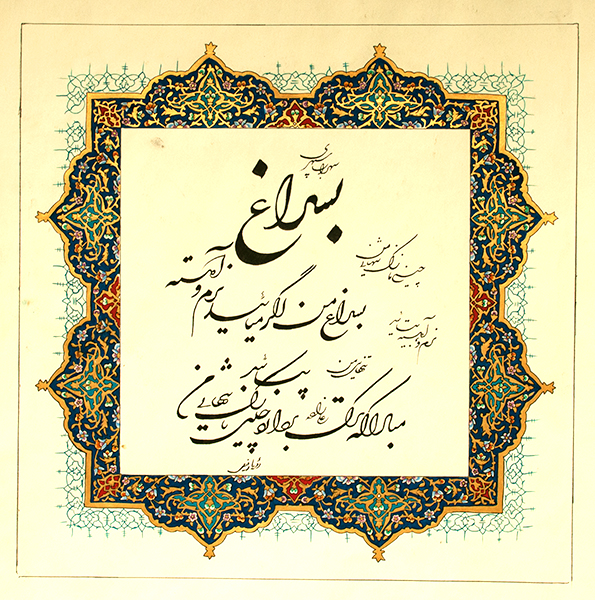 سهراب سپهری
بسراغ
چینی نازک
تنهایی من
بسراغ من اگر میآئید نرم و آهسته
نرم و آهسته بیائید
تنهایی من
مبادا که ترک بردارد چینی نازک تنهایی من